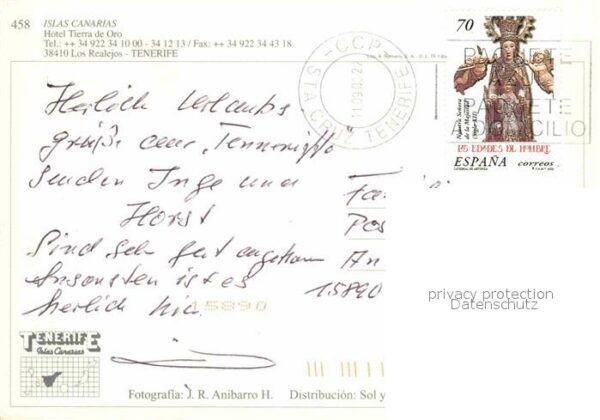 458 ISLAS CANARIAS
Hotel Tierra de Oro
Tel.: ++ 34 922 34 10 00 - 34 12 13 / Fax: ++ 34 922 34 43 18
38410 Los Realejos - TENERIFE
70
CCP
STA CRUZ TENERIFE
PAQUETE
PAQUETE
A DOMICILIO
Nuestra Señora
de la Majestad
LAS EDADES DEL HOMBRE
ESPAÑA correos
Herlich Urlaubs
grüße aus "Tenneriffa"
senden Inge und
Horst
Sind sehr gut angekom
Ansonsten ist es
herlich hier.
Fa
Pos
An
15890
15890
privacy protection
Datenschutz
TENERIFE
Islas Canarias
Fotografía: J. R. Anibarro H. Distribución: Sol y